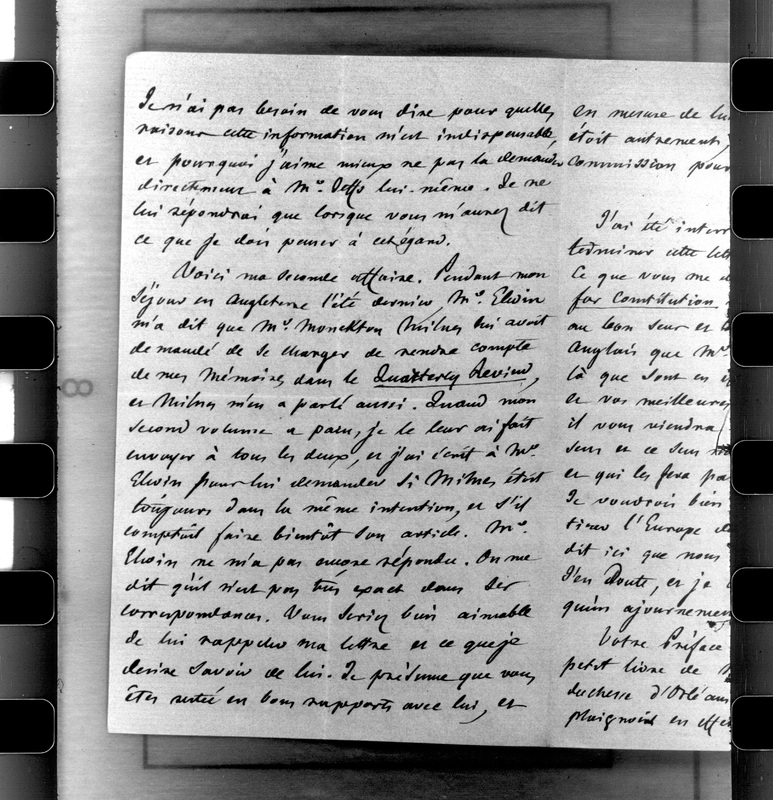 Je n'ai pas besoin de vous dire pour quelles
raisons cette information m'est indispensable,
et pourquoi j'aime mieux ne pas la demander
directement à Mr. lui-même. Je ne
lui répondrai que lorsque vous m'aurez dit
ce que je dois penser à cet égard.
Voici ma seconde affaire. Pendant mon
séjour en Angleterre l'été dernier, Mr. Elwin
m'a dit que Mr. Monckton Milnes lui avoit
demandé de se charger de rendre compte
de mes Mémoires dans le Quarterly Review,
et Milnes m'en a parlé aussi. Quand mon
second volume a paru, je le leur ai fait
envoyer à tous les deux, et j'ai écrit à Mr.
Elwin pour lui demander si Milnes étoit
toujours dans la même intention, et s'il
comptoit faire bientôt son article. Mr.
Elwin ne m'a pas encore répondu. On me
dit qu'il n'est pas très exact dans ses
correspondances. Vous seriez bien aimable
de lui rappeler ma lettre et ce que je
desire savoir de lui. Je présume que vous
êtes resté en bons rapports avec lui, et
en mesure de lui
étoit autrement,
commission pour
J'ai été interr
terminer cette lett
Ce que vous me d
for Constitution
au bon sens et
Anglais que Mr.
là que sont en
et vos meilleures
il vous viendra
sens et ce sens
et qui les fera pa
Je voudrois bien
tiens l'Europe d
dit ici que nous
J'en doute, et je
qu'un ajournement
Votre Préface
petit livre de
duchesse d'Orléans
plaignoient en effet
8